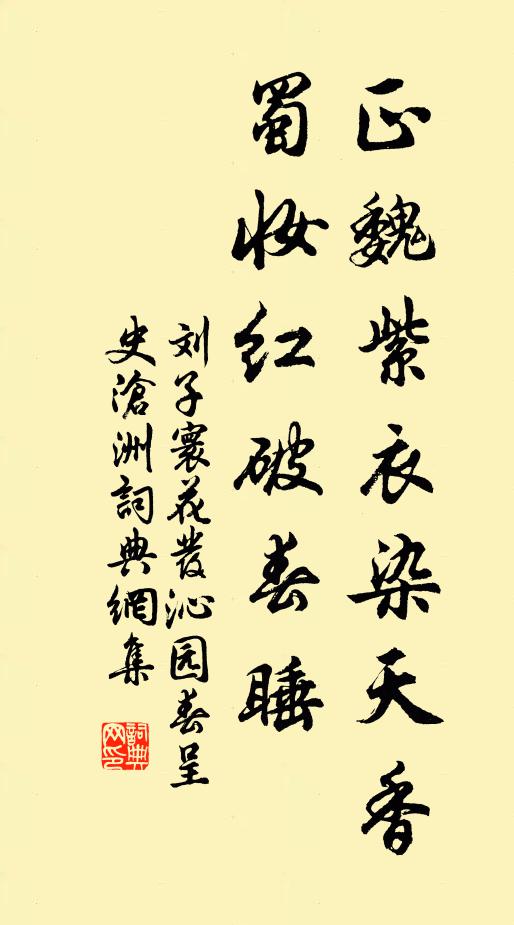 正魏紫衣染天香
蜀妆红破春睡
刘子寰花发沁园春呈
史滄洲詞典網集
詞典网印